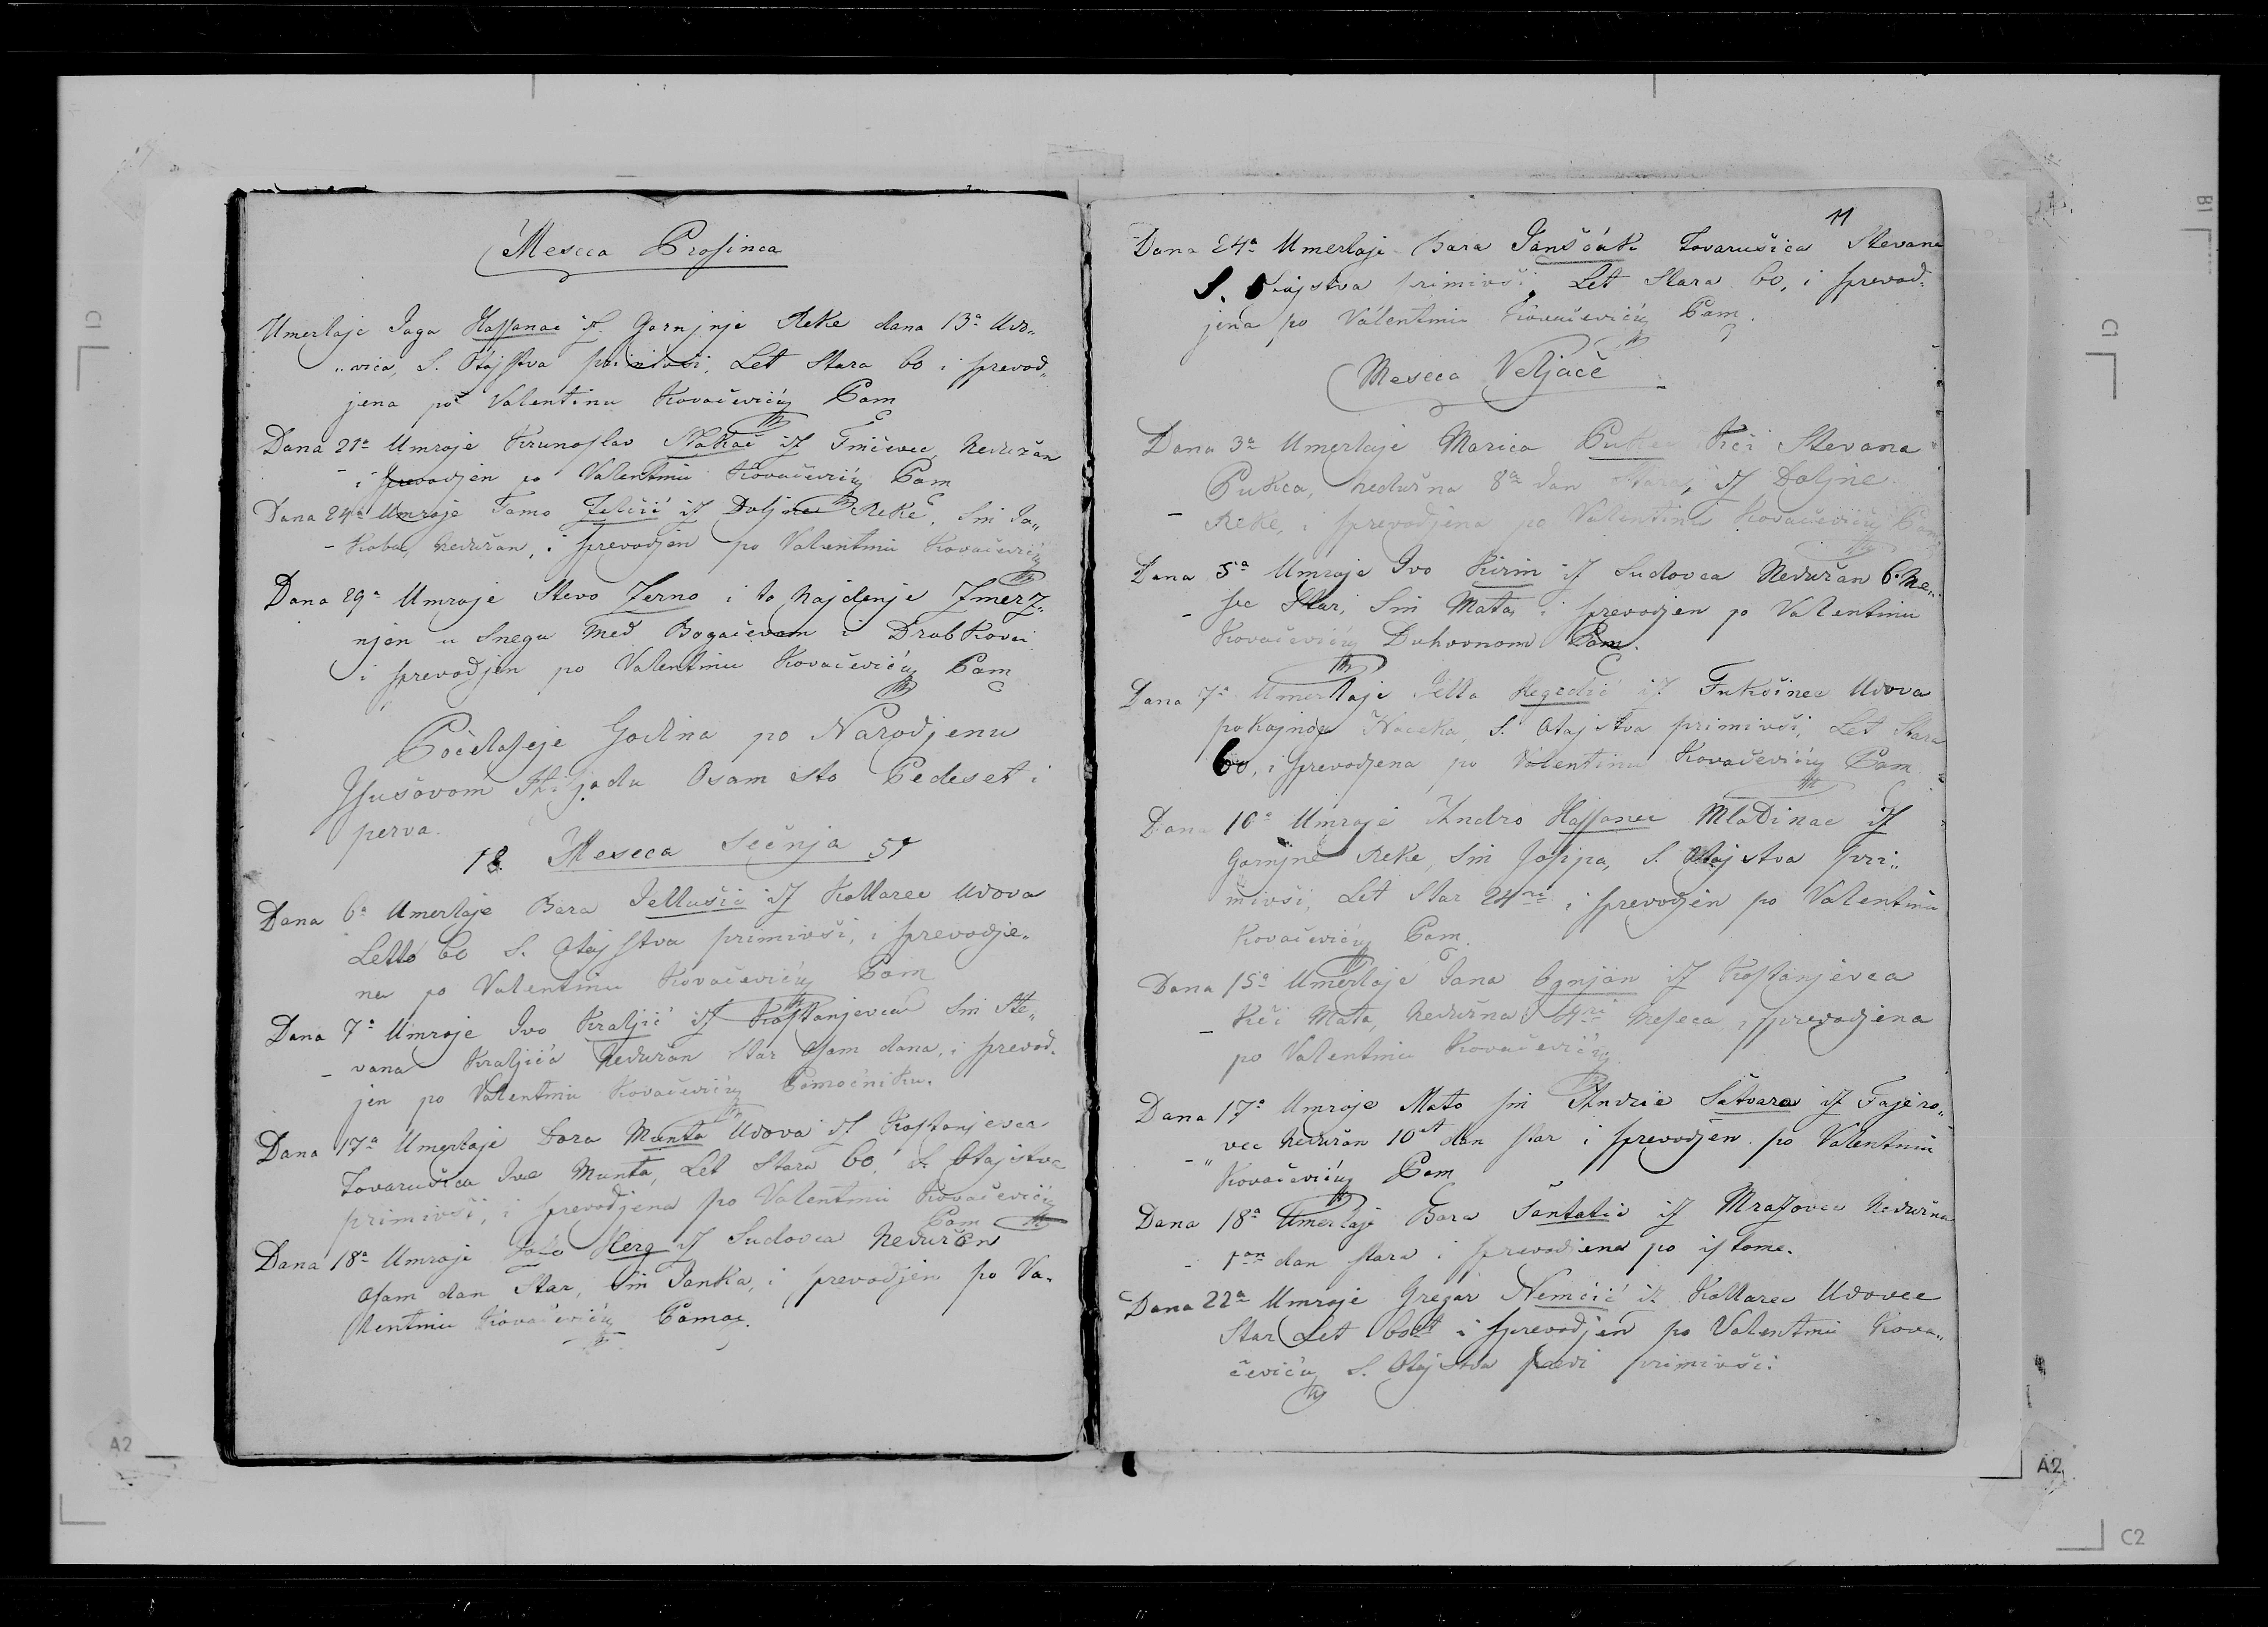 Meseca Prosinca
Umerlaje Jaga Hassanac iz Garnjnje Reke dana 13a Udo„
„vica, S. Otajstva primivsi, Let Stara 60 i sprevod„
jena po Valentinu Kovačeviću Pam
Dana 21a Umroje Krunoslav iz Neduržan
i sprevodjen po Valentinu Kovačeviću Pam
Dana 24a Umroje Tomo Zelčić iz Doljne Reke, Sin Ja„
- Koba, Neduržan, i sprevodjen po Valentinu Kovačeviću
Dana 29a Umroje Stevo Zerno i to najdenje Zmerz„
njen u Snegu Med Bogačevam i Drabkovci
i sprevodjen po Valentinu Kovačeviću Pam
Počelaseje Godina po Narodjenu
Isusovom Hiljadu Osam sto Pedeset i
perva.
18 Meseca Sečnja 51
Dana 6a Umerlaje Bara Jellušić iz Kallarec Udova
Letto 60 S. Otajstva primivši, i sprevodje„
na po Valentinu Kovačeviću Pam
Dana 7a Umroje Ivo Kraljić iz Kostanjevca Sin Ste„
- vana Kraljića Neduržan Star Osam dana, i sprevod„
jen po Valentinu Kovačeviću Pomoćniku.
Dana 17a Umerlaje Dora Munta Udova iz Kostanjevca
Tovarušica Ive Munta, Let Stara 60, S. Otajstva
primivši, i sprevodjena po Valentinu Kovačeviću
Pam
Dana 18a Umroje Herg iz Sudovca Neduržan
Osam dan Star, Sin Janka, i sprevodjen po Va„
llentinu Kovačeviću Pomoć.
11
Dana 24a Umerlaje Bara Jansčák Tovarušica Stevana
S. Otajstva primivši, Let Stara 60, i sprevod„
jena po Valentinu Kovačeviću Pam.
Meseca Veljače
Dana 3a Umerlaje Marica Pukec Kći Stevana
Pukca, nedužna 8a dan Stara, iz Doljne
- Reke, i sprevodjena po Valentinu Kovačeviću Pam
Dana 5a Umroje Ivo Kirin iz Sudovca Neduržan 6 Me„
- sec Star, Sin Mata, i sprevodjen po Valentinu
Kovačeviću Duhovnom Pam.
Dana 7a Umerlaje Jella Hegedić iz Fukšinec Udova
pokojnoga S. Otajstva primivši, Let Stara
60, i sprevodjena po Valentinu Kovačeviću Pam.
Dana 10a Umroje Andro Hassanec Mladinac iz
Garnjne Reke, Sin Josipa, S. Otajstva pri„
mivši, Let Star 24ri i sprevodjen po Valentinu
Kovačeviću Pam.
Dana 15a Umerlaje Jana Ognjan iz Kostanjevca
- Kći Mata, Nedužna Meseca, i sprevodjena
po Valentinu Kovačeviću
Dana 17a Umroje Mato sin Andrie Šatvara iz Fajero„
- „vec Neduržan 10et dan star i sprevodjen po Valentinu
Kovačeviću Pam
Dana 18a Umerlaje Bara Šantalić iz Mrazovec Nedužna
- 1an dan stara i sprevodjena po istome.
Dana 22a Umroje Gregar Nemčić iz Kallarec Udovec
Star Let 60et i sprevodjen po Valentinu Kova„
čeviću S. Otajstva pervi primivši.
C1
A2
B1
C1
A2
C2